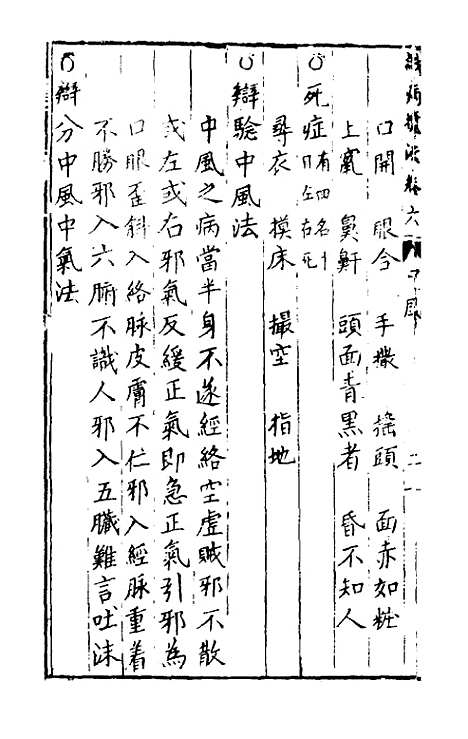 口開 眼合 手撒 搖頭 面赤如粧
上竄 鼻鼾 頭面青黑者 昏不知人
死症
尋衣 摸床 撮空 指地
辯驗中風法
中風之病當半身不遂經絡空虛賊邪不散
或左或右邪氣反緩正氣即急正氣引邪為
口眼歪斜入絡脉皮膚不仁邪入經脉重着
不勝邪入六腑不識人邪入五臟難言吐沫
辯分中風中氣法